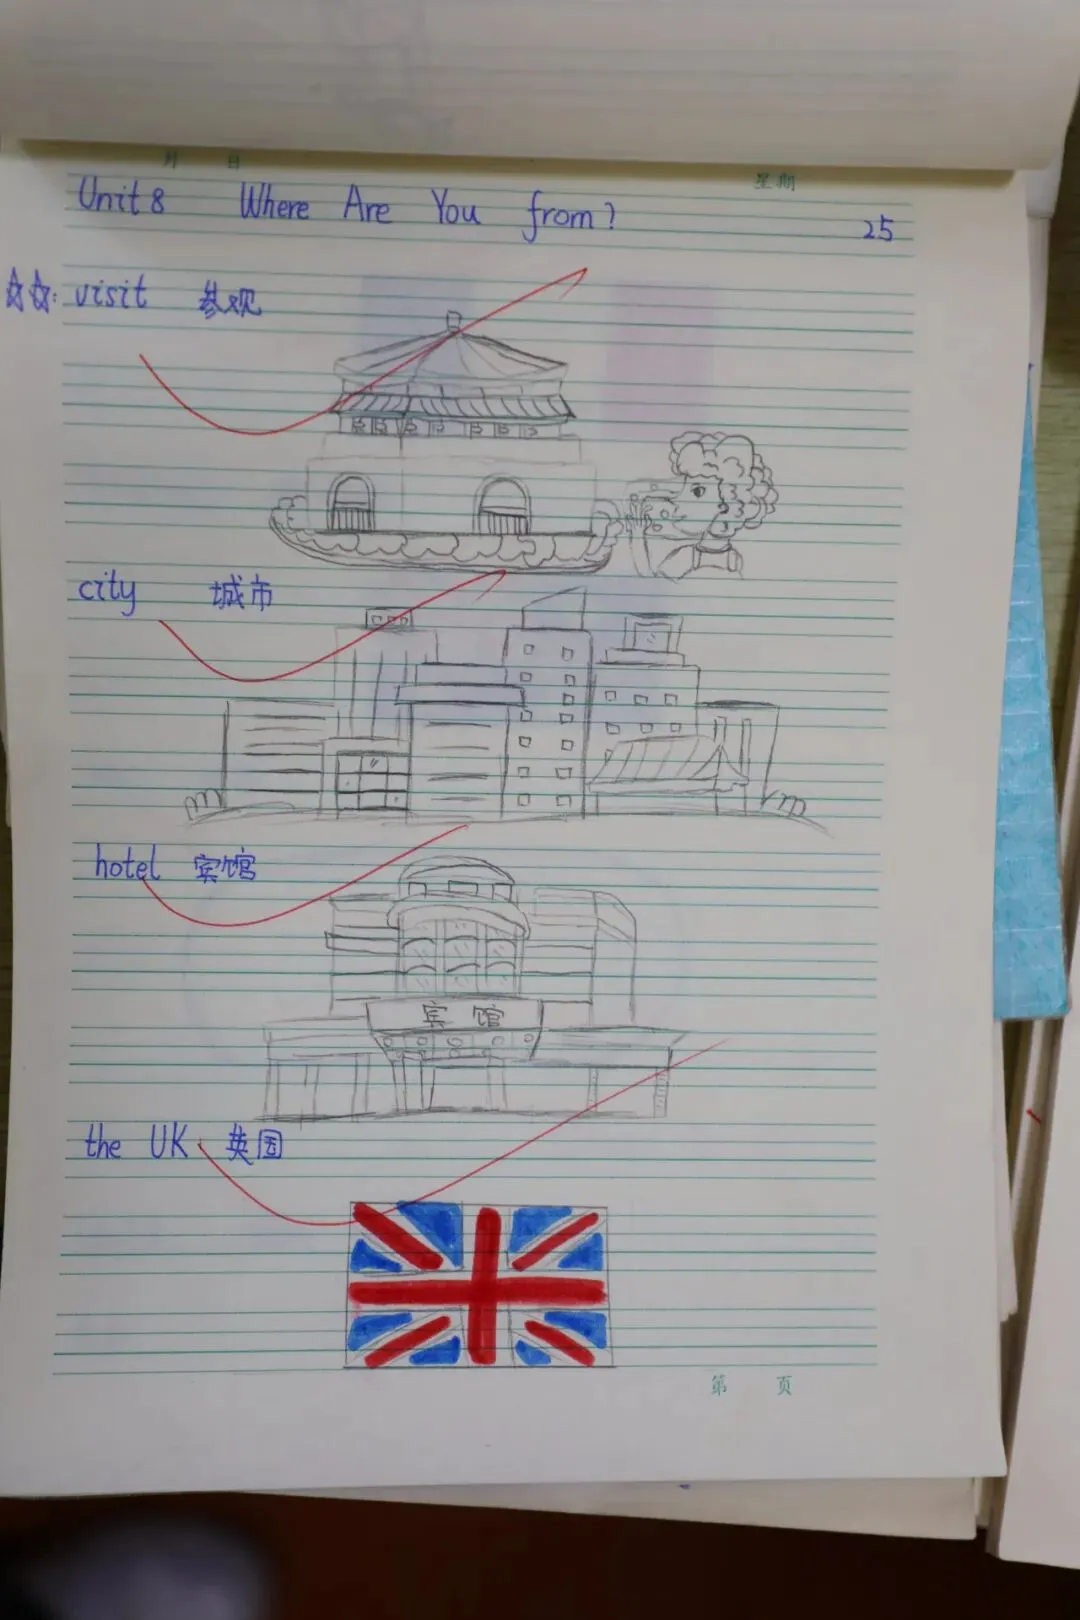 月 日 星期
Unit 8 Where Are You from?
25
☆☆: visit 参观
city 城市
hotel 宾馆
宾馆
the UK 英国
第 页